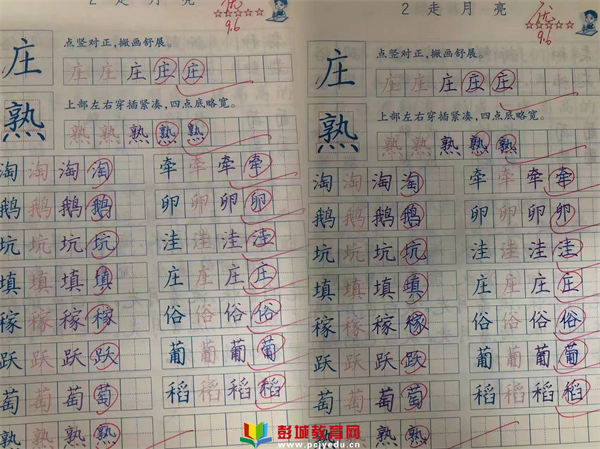 2 走月亮
优
9.6
庄
点竖对正，撇画舒展。
庄 庄 庄 庄 庄
熟
上部左右穿插紧凑，四点底略宽。
熟 熟 熟 熟 熟
淘 淘 淘 淘 牵 牵 牵 牵
鹅 鹅 鹅 鹅 卵 卵 卵 卵
坑 坑 坑 坑 洼 洼 洼 洼
填 填 填 填 庄 庄 庄 庄
稼 稼 稼 稼 俗 俗 俗 俗
跃 跃 跃 跃 葡 葡 葡 葡
萄 萄 萄 萄 稻 稻 稻 稻
熟 熟 熟 熟
2 走月亮
优
9.6
庄
点竖对正，撇画舒展。
庄 庄 庄 庄 庄
熟
上部左右穿插紧凑，四点底略宽。
熟 熟 熟 熟 熟
淘 淘 淘 淘 牵 牵 牵 牵
鹅 鹅 鹅 鹅 卵 卵 卵 卵
坑 坑 坑 坑 洼 洼 洼 洼
填 填 填 填 庄 庄 庄 庄
稼 稼 稼 稼 俗 俗 俗 俗
跃 跃 跃 跃 葡 葡 葡 葡
萄 萄 萄 萄 稻 稻 稻 稻
熟 熟 熟 熟
彭城教育网
www.pcjyedu.cn